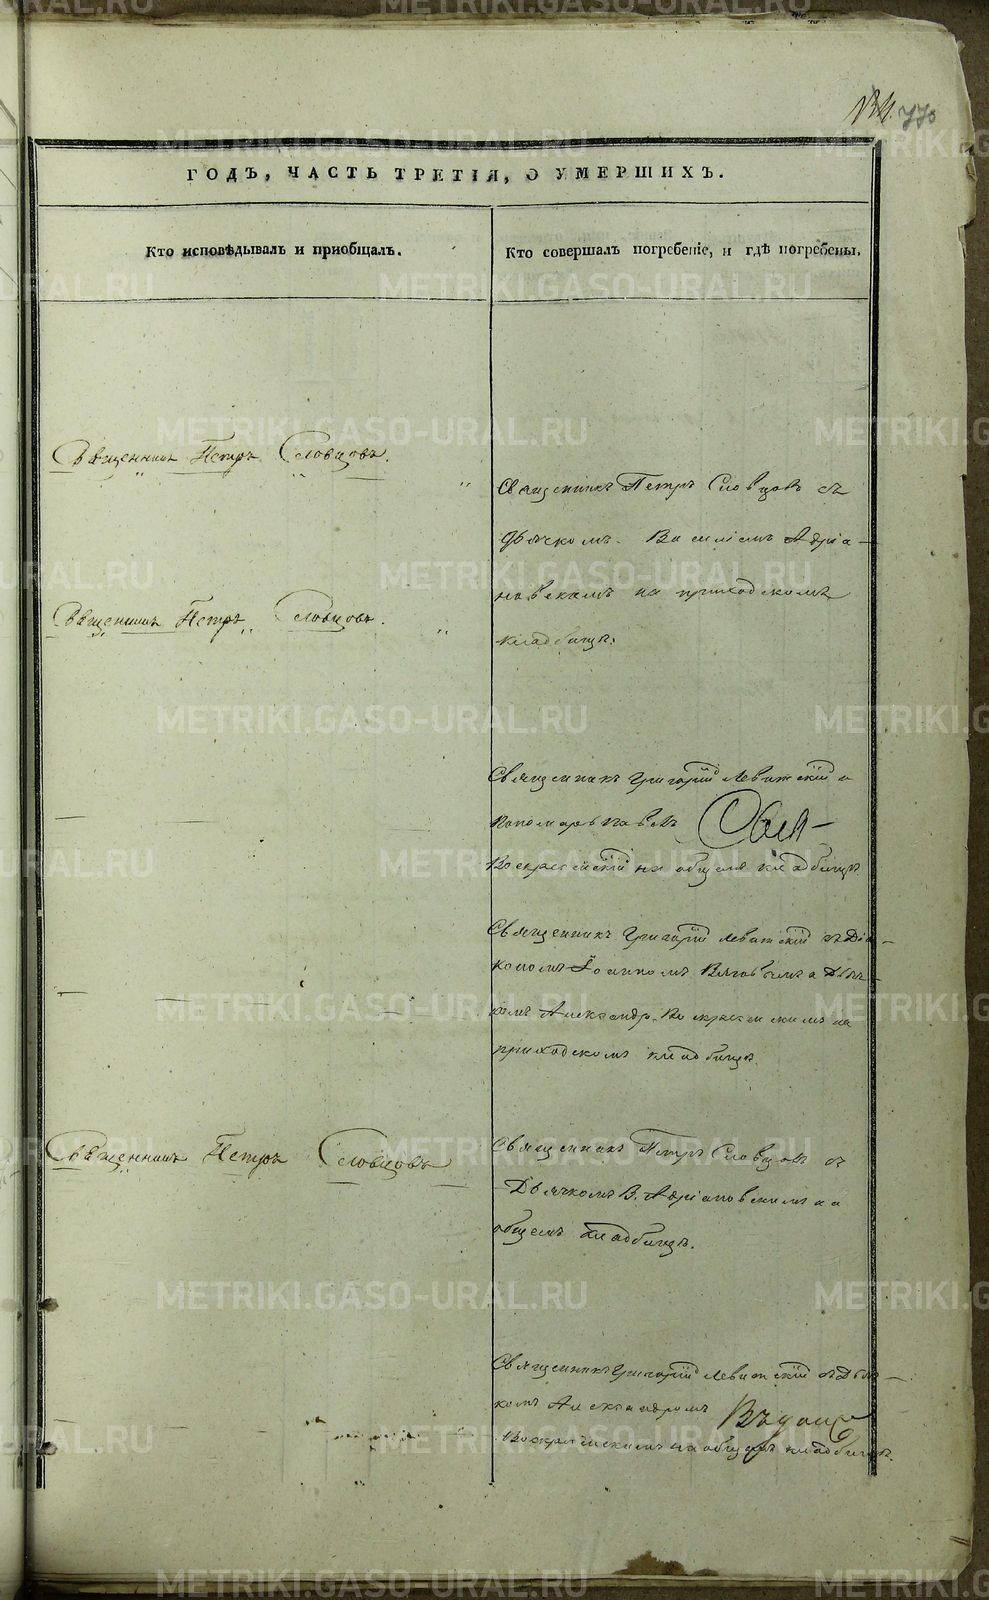 770
ГОДЪ, ЧАСТЬ ТРЕТІЯ, О УМЕРШИХЪ.
Кто исповѣдывалъ и пріобщалъ.
Кто совершалъ погребеніе, и гдѣ погребены.
Священникъ Петръ Словцовъ.
Священникъ Петръ Словцовъ съ
Дьячкомъ Василіемъ Адріа-
новскимъ на приходскомъ
кладбищѣ.
Священникъ Петръ Словцовъ.
Священникъ Григорій Левитскій и
пономарь Павелъ
Воскресенскій на общемъ кладбищѣ
Священникъ Григорій Левитскій съ Діа-
кономъ Іоанномъ и Дьяч-
комъ Александр. Воскресенскимъ на
приходскомъ кладбищѣ
Священникъ Петръ Словцовъ
Священникъ Петръ Словцовъ съ
Дьячкомъ В. Адріановскимъ на
общемъ кладбищѣ.
Священникъ Григорій Левитскій съ Дьяч-
комъ Александромъ
Воскресенскимъ на общемъ кладбищѣ.
METRIKI.GASO-URAL.RU